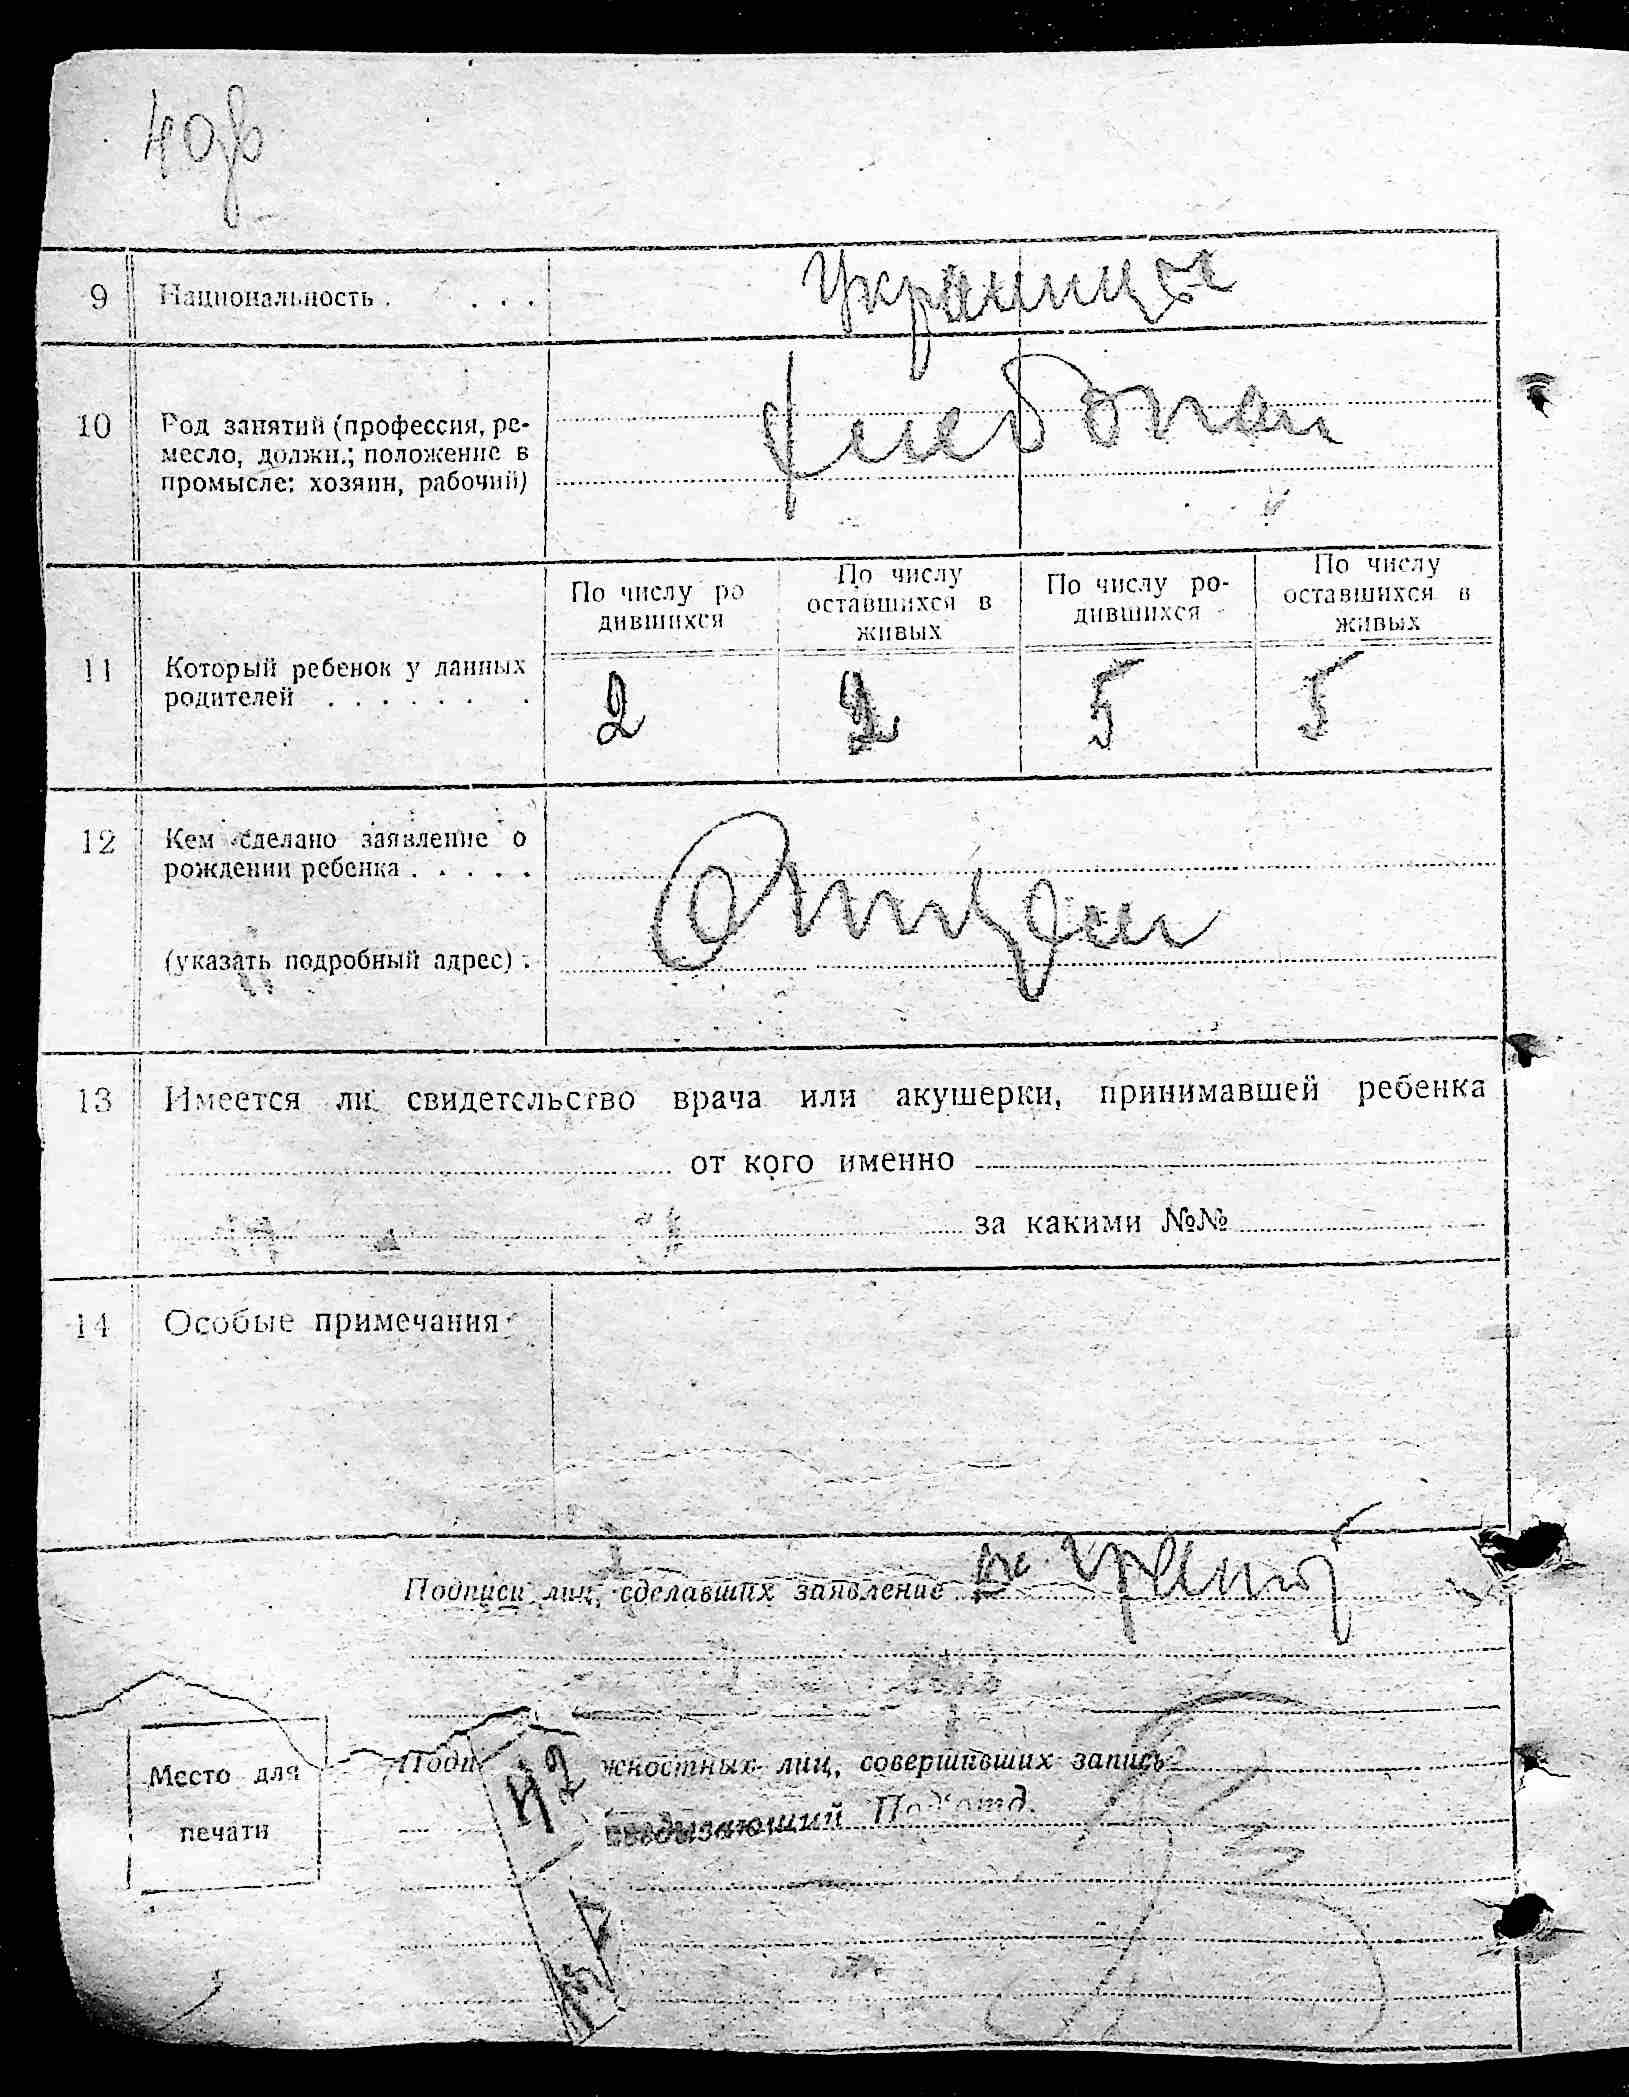 40об
9 Национальность . . . . Украинцы
10 Род занятий (профессия, ре-
месло, должн.; положение в
промысле: хозяин, рабочий)
хлебопаш
По числу ро
дившихся
По числу
оставшихся в
живых
По числу ро-
дившихся
По числу
оставшихся в
живых
11 Который ребенок у данных
родителей . . . . . . .
2 2 5 5
12 Кем сделано заявление о
рождении ребенка . . . . .
(указать подробный адрес) .
Отцем
13 Имеется ли свидетельство врача или акушерки, принимавшей ребенка
от кого именно
за какими №№
14 Особые примечания
Подписи лиц, сделавших заявление
Место для
печати
Поди жностных лиц, совершивших запись
42
Заведывающий Под'отд.